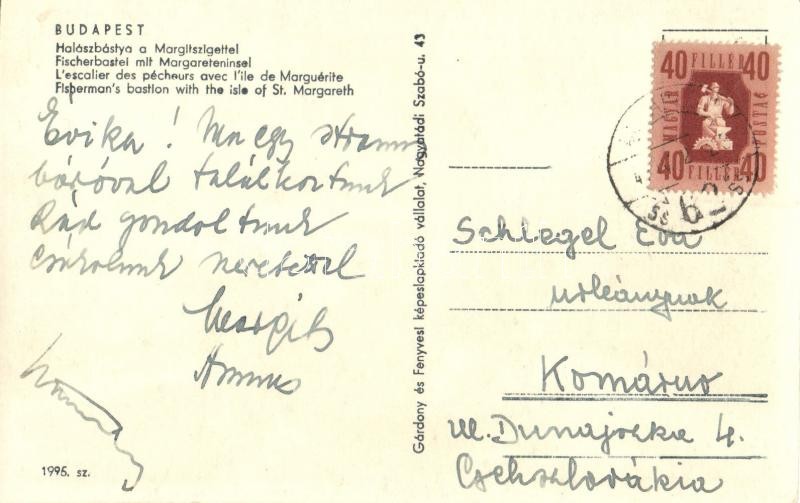 BUDAPEST
Halászbástya a Margitszigettel
Fischerbastei mit Margareteninsel
L'escalier des pécheurs avec l'île de Marguérite
Fisherman's bastion with the isle of St. Margareth
Évika! Ma egy
báróval találkoztunk
Rád gondoltunk
Csókolunk szeretettel
Margit
Annus
1995. sz.
Gárdony és Fenyvesi képeslapkiadó vállalat, Nagyatádi Szabó-u. 43
40 FILLÉR 40
MAGYAR POSTA
40 FILLÉR 40
62
Schlegel Éva
urleánynak
Komárno
ul. Dunajska 4.
Csehszlovákia